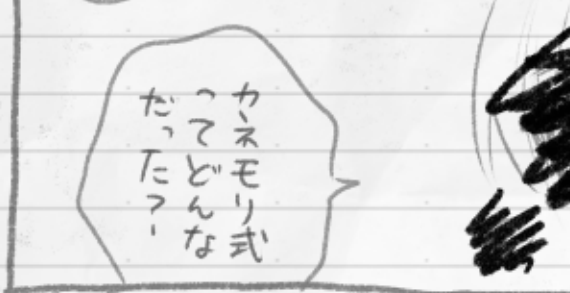 カネモリ式
ってどんな
だった?